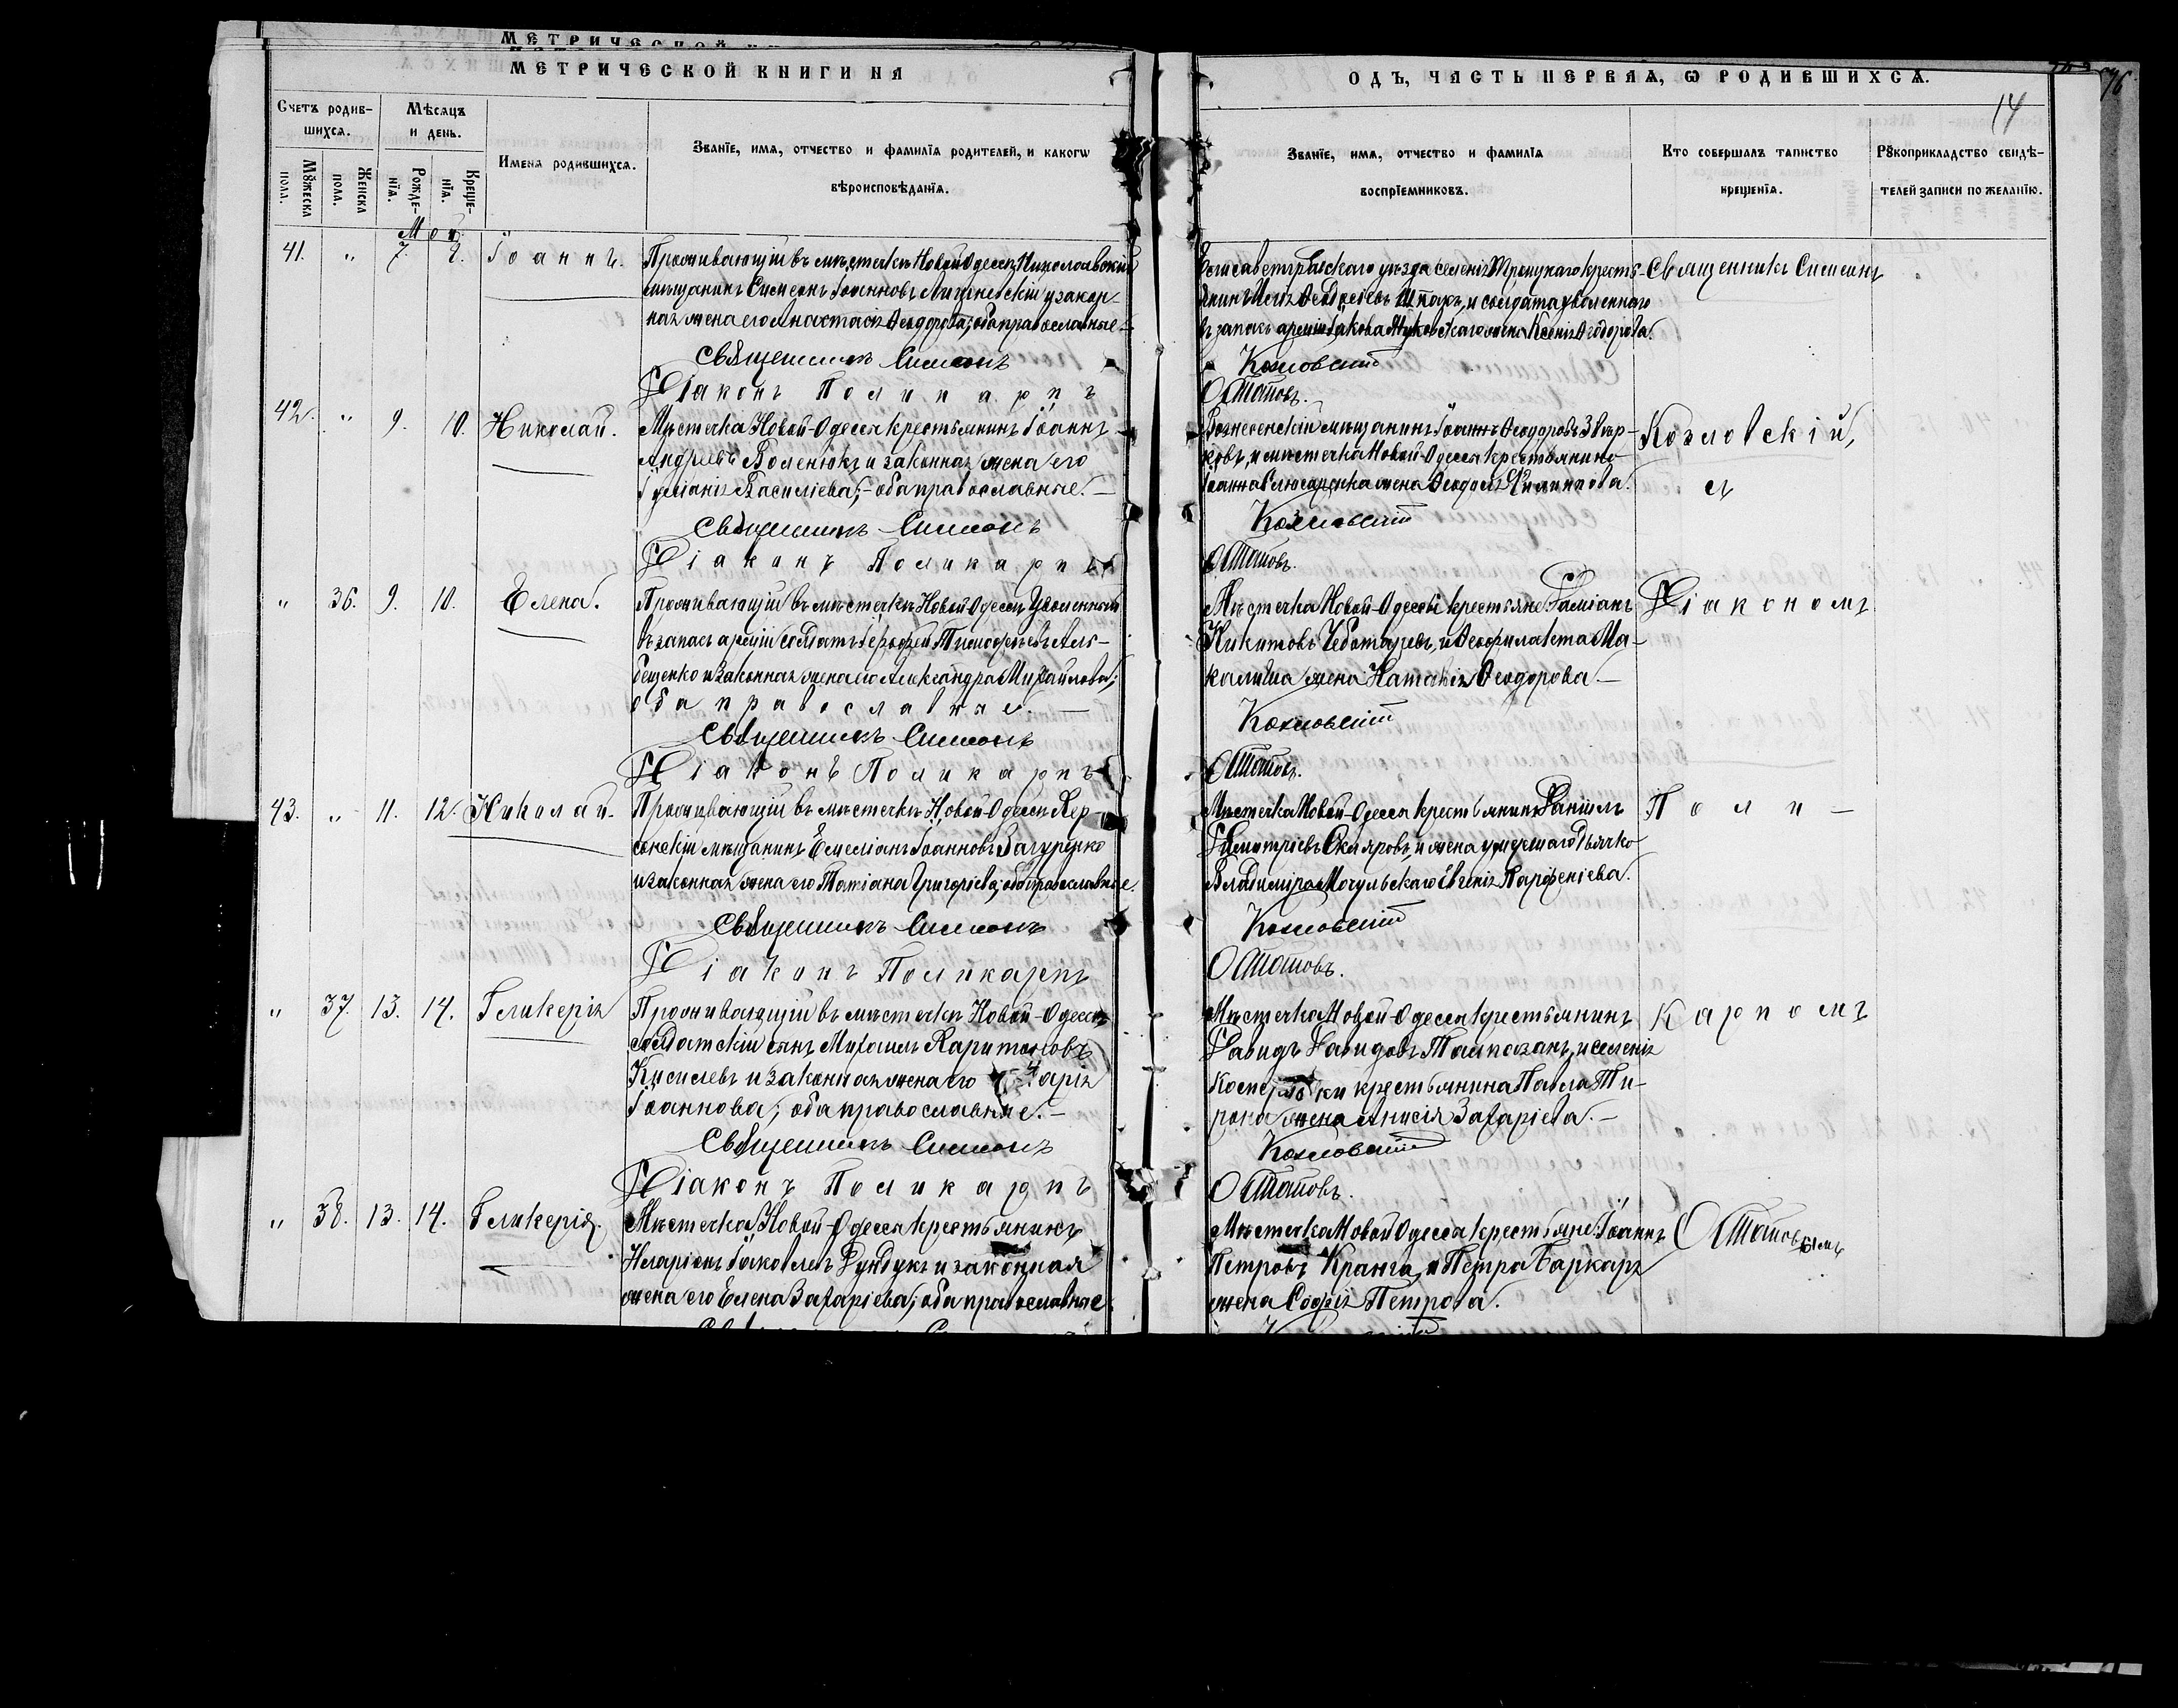 МЕТРИЧЕСКОЙ КНИГИ НА
ОДЪ, ЧАСТЬ ПЕРВАѦ, Ѡ РОДИВШИХСѦ.
14
96
Счетъ родив-
шихсѧ.
Мѣсяцъ
и день.
Имена родившихсѧ.
Званїе, имѧ, отчество и фамилїѧ родителей, и какогѡ
вѣроисповѣданїѧ.
Званїе, имѧ, отчество и фамилїѧ
воспрїемниковъ.
Кто совершалъ таинство
крещенїѧ.
Рꙋкоприкладство свидѣ-
телей записи по желанїю.
Мꙋжеска
пола.
Женска
пола.
Рожде-
нїѧ.
Креще-
нїѧ.
Май
41. " 7. 9. Іоаннъ.
Проживающій въ мѣстечкѣ Новой Одессѣ Николаевскій
мѣщанинъ Симеонъ Іоанновъ и закон-
ная жена его Анастасія Ѳеодорова; оба православные.
Священникъ Симеонъ
Діаконъ Поликарпъ
Елисаветградскаго уѣзда селенія Троицкаго кресть-
янинъ и солдата уволеннаго
въ запасъ арміи Іакова жена Ксенія Ѳеодорова.
Козловскій
Остаповъ.
Священникъ Симеонъ
42. " 9. 10. Николай.
Мѣстечка Новой-Одессы крестьянинъ Іоаннъ
Андреевъ и законная жена его
Іуліанія Василіева; - оба православные. -
Священникъ Симеонъ
Діаконъ Поликарпъ
Вознесенскій мѣщанинъ Іоаннъ Ѳеодоровъ Звѣр-
ковъ, и мѣстечка Новой-Одессы крестьянина
Іоанна Слюсаренка жена
Козловскій
Остаповъ.
Козловскій,
съ
" 36. 9. 10. Елена.
Проживающій въ мѣстечкѣ Новой Одессѣ Уволенный
въ запасъ арміи солдатъ Іероѳей Тимоѳеевъ
и законная жена его Александра Михайлова;
оба православные. -
Священникъ Симеонъ
Діаконъ Поликарпъ
Мѣстечка Новой-Одессы крестьяне Даміанъ
Никитовъ Чеботаревъ, и Ѳеофилакта Ма-
жена Наталія Ѳеодорова. -
Козловскій
Остаповъ.
Діакономъ
43. " 11. 12. Николай.
Проживающій въ мѣстечкѣ Новой-Одессѣ Хер-
сонскій мѣщанинъ Емеліанъ Іоанновъ Загуренко
и законная жена его Татіана Григоріева; оба православные.
Священникъ Симеонъ
Діаконъ Поликарпъ
Мѣстечка Новой-Одессы крестьянинъ Даніилъ
Димитріевъ и жена умершаго дьячка
Владиміра Могульскаго Евгенія Парѳеніева.
Козловскій
Остаповъ.
Поли-
" 37. 13. 14. Гликерія
Проживающій въ мѣстечкѣ Новой-Одессѣ
солдатскій сынъ Михаилъ Харитоновъ
Киселевъ и законная жена его Марія
Іоаннова; оба православные. -
Священникъ Симеонъ
Діаконъ Поликарпъ
Мѣстечка Новой-Одессы крестьянинъ
Давидъ Давидовъ и селенія
крестьянина Павла Ти-
рона жена Анисія Захаріева. -
Козловскій
Остаповъ.
карпомъ
" 38. 13. 14. Гликерія.
Мѣстечка Новой-Одессы крестьянинъ
Иларіонъ Іаковлевъ Рундукъ и законная
жена его Елена Захаріева; оба православные.
Мѣстечка Новой Одессы крестьяне: Іоаннъ
Петровъ Кранга, и Петра Баркаря
жена Софія Петрова.
Остаповымъ